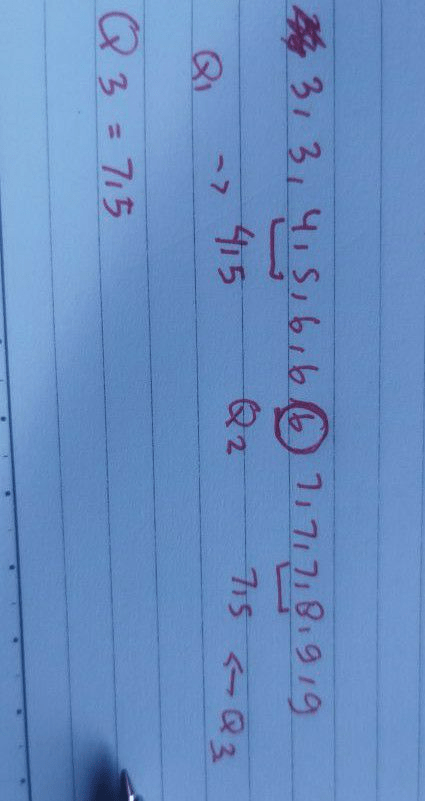 3, 3, 4, 5, 6, 6 6 7, 7, 7, 8, 9, 9
Q1 -> 4,5 Q2 7,5 <- Q3
Q3 = 7,5